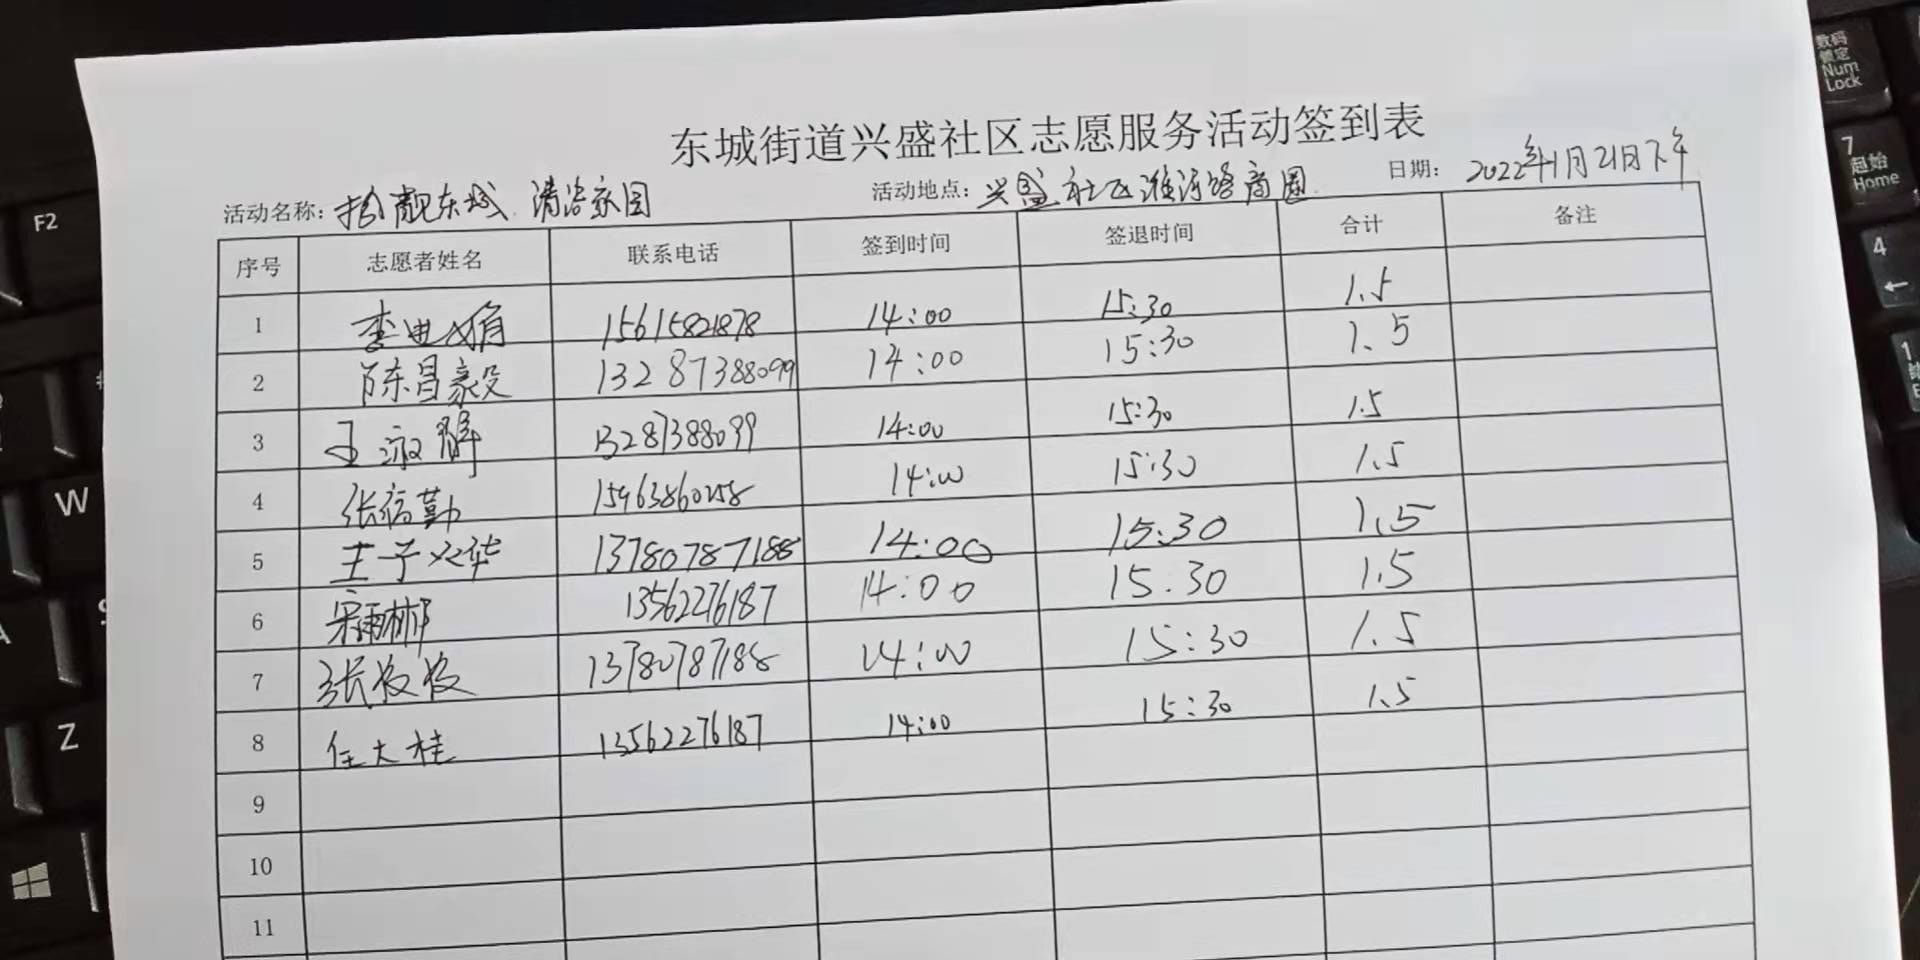 东城街道兴盛社区志愿服务活动签到表
活动名称: 拾靓东城 清洁家园 活动地点: 兴盛社区淮河路商圈 日期: 2022年1月21日下午
序号 志愿者姓名 联系电话 签到时间 签退时间 合计 备注
1 15615821878 14:00 15:30 1.5
2 陈昌毅 13287388099 14:00 15:30 1.5
3 王 13287388099 14:00 15:30 1.5
4 张 勤 15963860258 14:00 15:30 1.5
5 王子 13780787188 14:00 15:30 1.5
6 宋雨彬 13562276187 14:00 15:30 1.5
7 张 13780787188 14:00 15:30 1.5
8 任大桂 13562276187 14:00 15:30 1.5
9
10
11
数码
锁定
Num
Lock
7
起始
Home
4
←
1
F2
W
Z